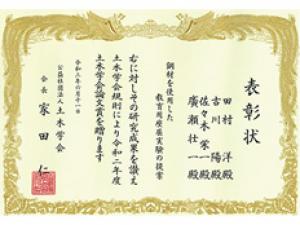 表彰状
田村 洋殿
吉川 陽殿
佐々木栄一殿
廣瀬壮一殿
鋼材を使用した
教育用座屈実験の提案
右に対しその研究成果を讃え
土木学会規則により令和二年度
土木学会論文賞を贈ります
令和三年六月十一日
公益社団法人土木学会
会長 家田 仁